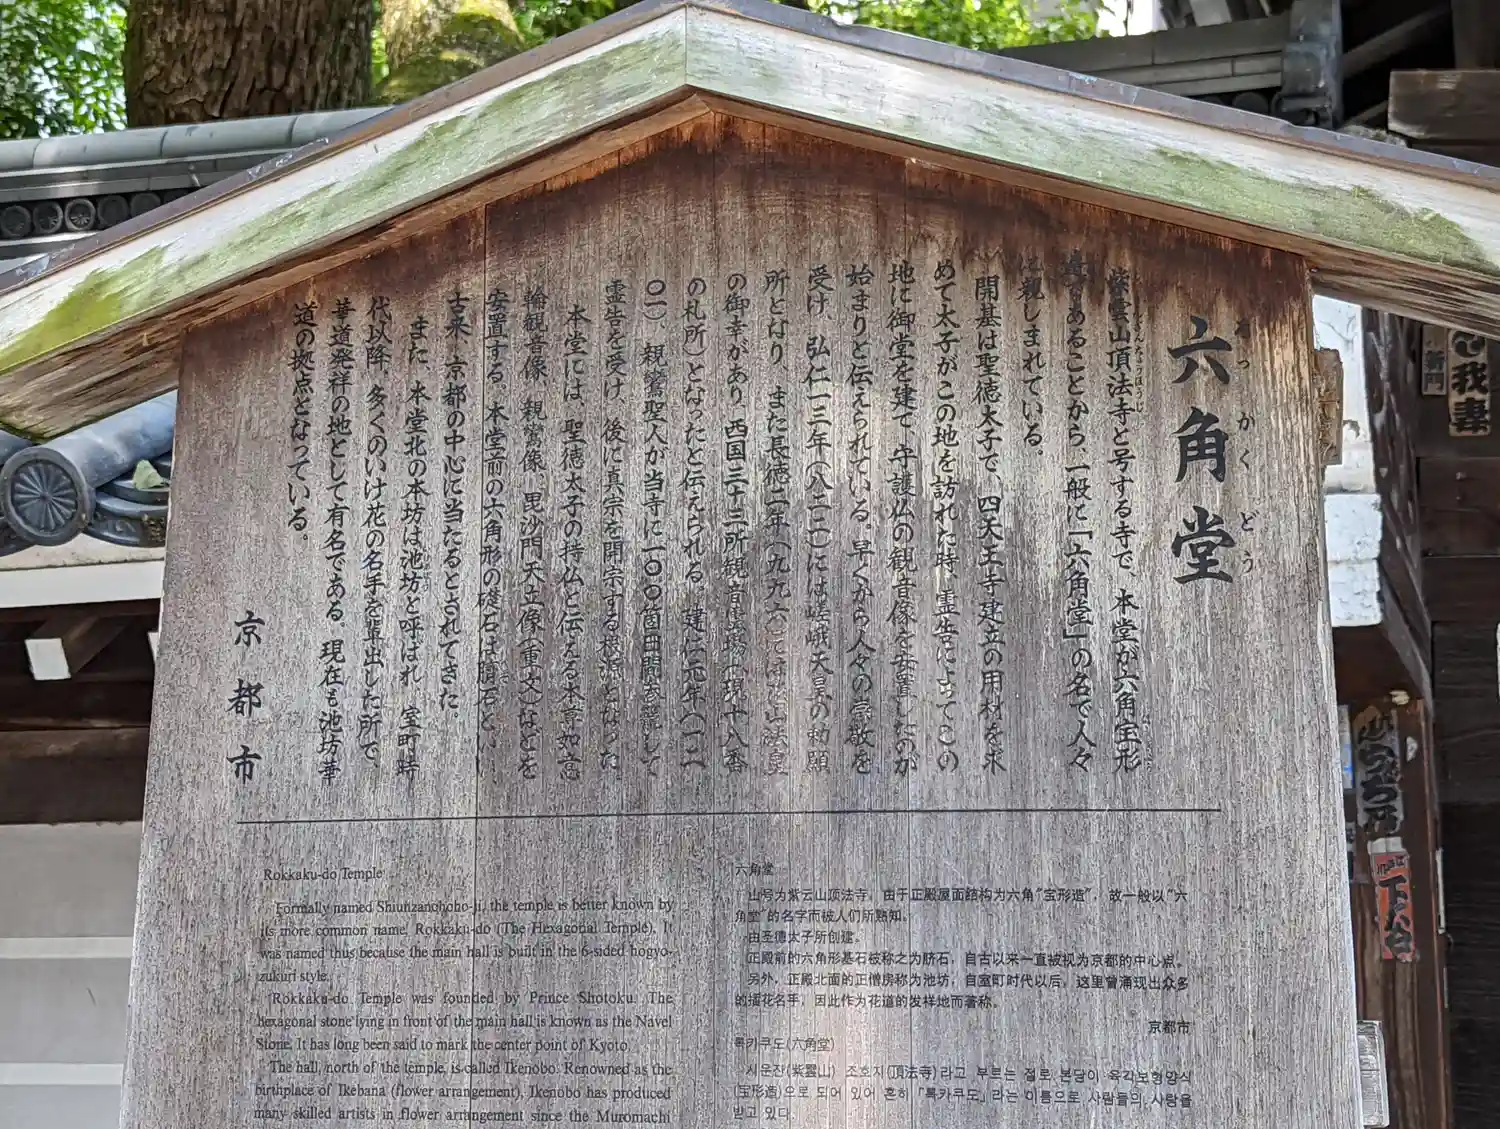 六角堂
ろっかくどう
紫雲山頂法寺と号する寺で、本堂が六角宝形
造であることから、一般に「六角堂」の名で人々
に親しまれている。
開基は聖徳太子で、四天王寺建立の用材を求
めて太子がこの地を訪れた時、霊告によってこの
地に御堂を建て、守護仏の観音像を安置したのが
始まりと伝えられている。早くから人々の崇敬を
受け、弘仁一三年（八二二）には嵯峨天皇の勅願
所となり、また長徳二年（九九六）には花山法皇
の御幸があり、西国三十三所観音霊場（現十八番
の札所）となったと伝えられる。建仁元年（一二
〇一）、親鸞聖人が当寺に一〇〇箇日間参籠して
霊告を受け、後に真宗を開宗する根源となった。
本堂には、聖徳太子の持仏と伝える本尊如意
輪観音像、親鸞像、毘沙門天立像（重文）などを
安置する。本堂前の六角形の礎石は臍石といい、
古来、京都の中心に当たるとされてきた。
また、本堂北の本坊は池坊と呼ばれ、室町時
代以降、多くのいけ花の名手を輩出した所で、
華道発祥の地として有名である。現在も池坊華
道の拠点となっている。
京都市
Rokkaku-do Temple
Formally named Shiunzanchoho-ji, the temple is better known by
its more common name, Rokkaku-do (The Hexagonal Temple). It
was named thus because the main hall is built in the 6-sided hogyo-
zukuri style.
Rokkaku-do Temple was founded by Prince Shotoku. The
hexagonal stone lying in front of the main hall is known as the Navel
Stone. It has long been said to mark the center point of Kyoto.
The hall, north of the temple, is called Ikenobo. Renowned as the
birthplace of Ikebana (flower arrangement), Ikenobo has produced
many skilled artists in flower arrangement since the Muromachi
六角堂
山号为紫云山顶法寺。由于正殿屋面結构为六角“宝形造”，故一般以“六
角堂”的名字而被人们所熟知。
由圣德太子所创建。
正殿前的六角形基石被称之为脐石，自古以来一直被视为京都的中心点。
另外，正殿北面的正僧房称为池坊，自室町时代以后，这里曾涌现出众多
的插花名手，因此作为花道的发样地而著称。
京都市
록카쿠도(六角堂)
시운잔(紫雲山) 조호지(頂法寺)라고 부르는 절로 본당이 육각보형양식
(宝形造)으로 되어 있어 흔히 「록카쿠도」라는 이름으로 사람들의 사랑을
받고 있다.
我妻